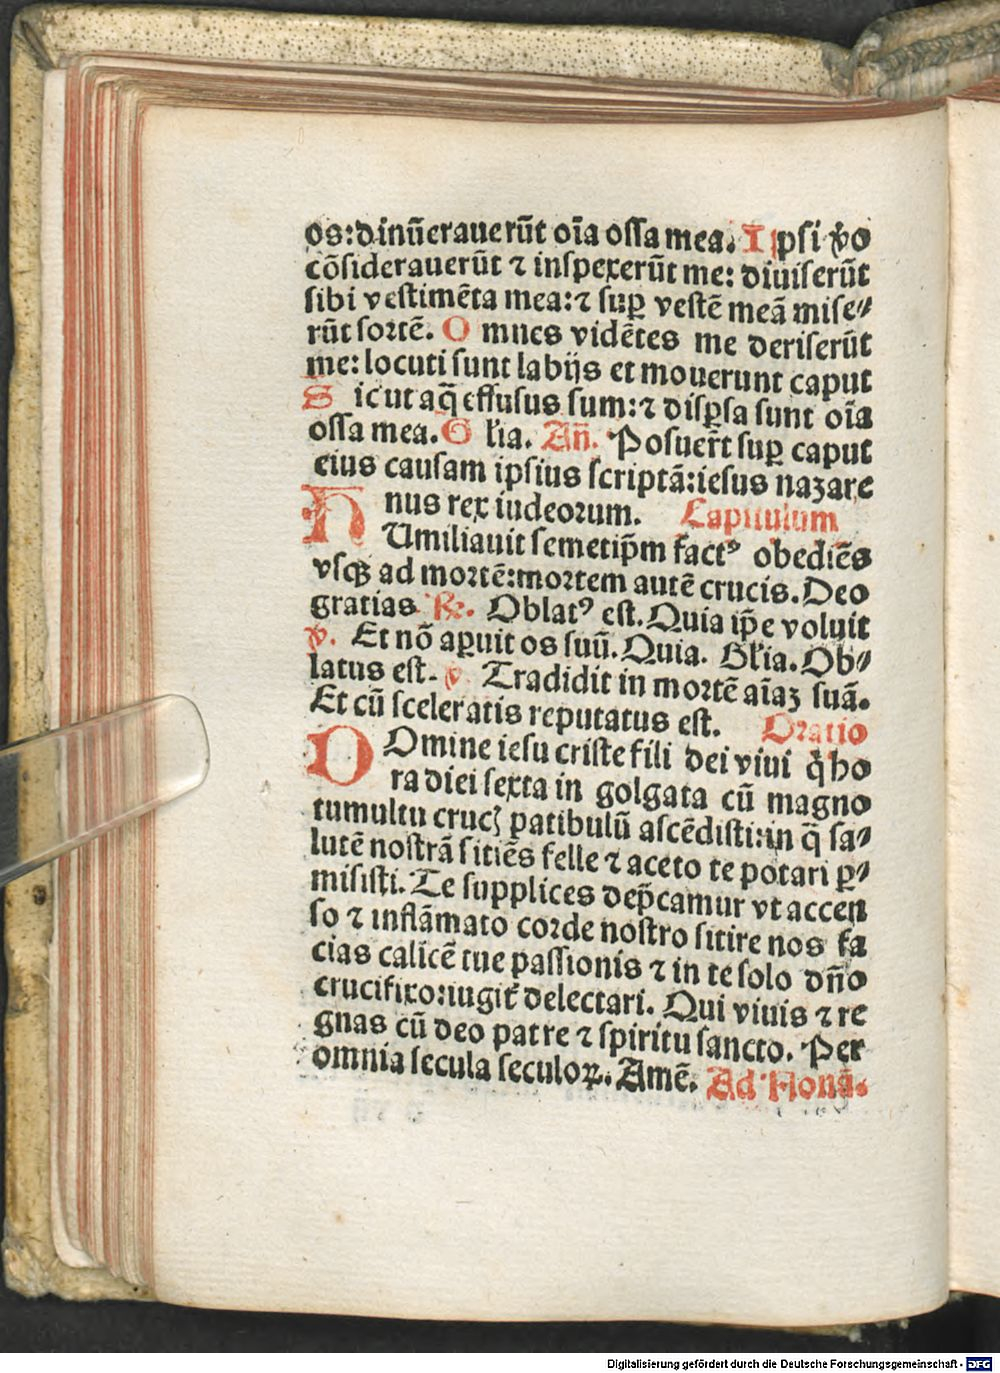 os:dinūerauerūt oīa ossa mea. Ipsi ꝟo
cōsiderauerūt ⁊ inspexerūt me: diuiserūt
sibi vestimēta mea:⁊ suꝑ vestē meā mise⸗
rūt sortē. Omnes vidētes me deriserūt
me: locuti sunt labijs et mouerunt caput
Sicut aq̄ effusus sum:⁊ disꝑsa sunt oīa
ossa mea. Gl'ia. Añ. Posuer̄t suꝑ caput
eius causam ipsius scriptā:iesus nazare
nus rex iudeorum. Capitulum
HUmiliauit semetip̄m factꝰ obediēs
vsqꝫ ad mortē:mortem autē crucis. Deo
gratias ℟. Oblatꝰ est. Quia ip̄e voluit
℣. Et nō aꝑuit os suū. Quia. Gl'ia. Ob⸗
latus est. ℣ Tradidit in mortē aīaꝫ suā.
Et cū sceleratis reputatus est. Oratio
DOmine iesu criste fili dei viui q̄ ho
ra diei sexta in golgata cū magno
tumultu crucꝭ patibulū ascēdisti:in q̄ sa⸗
lutē nostrā sitiēs felle ⁊ aceto te potari ꝑ⸗
misisti. Te supplices dep̄camur vt accen
so ⁊ inflāmato corde nostro sitire nos fa
cias calicē tue passionis ⁊ in te solo dño
crucifixo:iugit̄ delectari. Qui viuis ⁊ re
gnas cū deo patre ⁊ spiritu sancto. Per
omnia secula seculoꝝ. Amē. Ad Nonā.
Digitalisierung gefördert durch die Deutsche Forschungsgemeinschaft - DFG